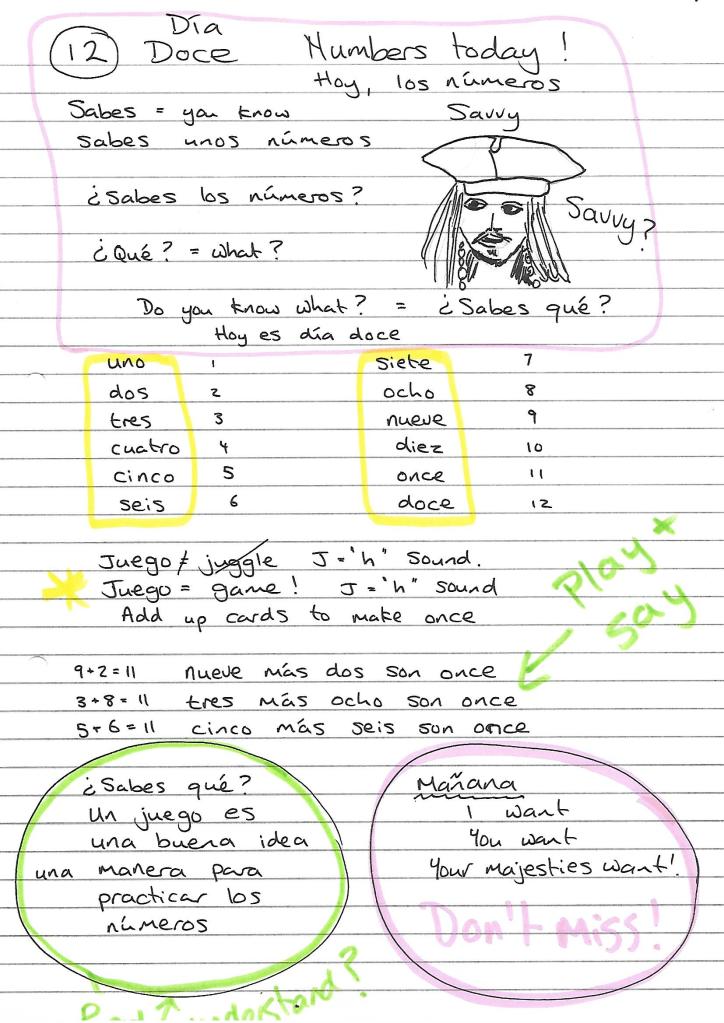 Día
12 Doce Numbers today !
Hoy, los números
Sabes = you know Savvy
sabes unos números
¿Sabes los números?
Savvy?
¿Qué? = what?
Do you know what? = ¿Sabes qué?
Hoy es día doce
uno 1 siete 7
dos 2 ocho 8
tres 3 nueve 9
cuatro 4 diez 10
cinco 5 once 11
seis 6 doce 12
Juego ≠ juggle J = "h" sound.
Juego = game! J = "h" sound
Add up cards to make once
Play +
say
9+2=11 nueve más dos son once
3+8=11 tres más ocho son once
5+6=11 cinco más seis son once
¿Sabes qué?
Un juego es
una buena idea
una manera para
practicar los
números
Mañana
I want
You want
Your majesties want!
Don't miss!
understand?